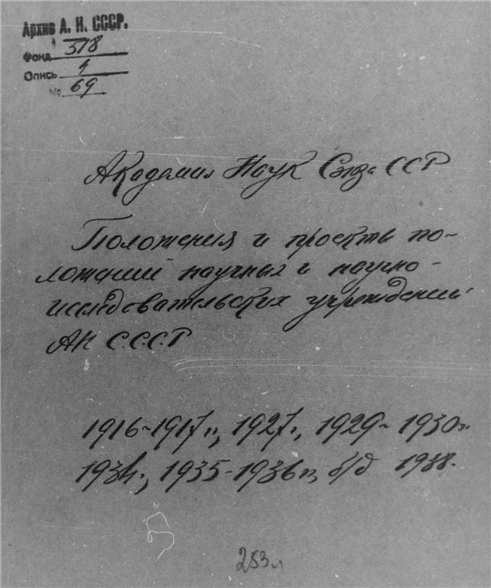 Архив А. Н. СССР.
Фонд 318
Опись 1
№ 69
Академия Наук Союза ССР
Положения и проекты по-
ложений научных и научно-
исследовательских учреждений
АН С.С.С.Р
1916-1917гг, 1927г, 1929-1930гг
1934г, 1935-1936гг, б/д 1938.
253л